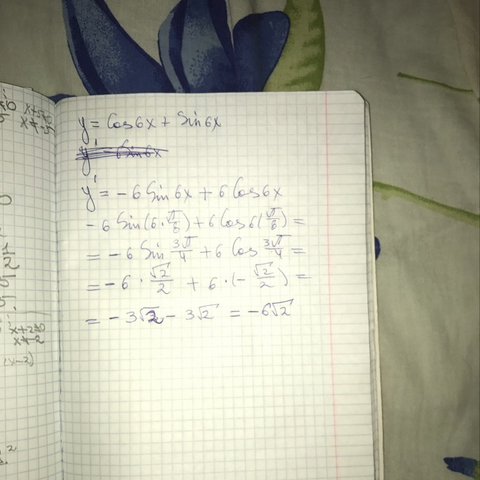 y = Cos6x + Sin6x
y' = -6 Sin6x + 6 Cos6x
-6 Sin(6·π/8) + 6 Cos 6(π/8) =
= -6 Sin 3π/4 + 6 Cos 3π/4 =
= -6 · √2/2 + 6·(-√2/2) =
= -3√2 - 3√2 = -6√2
x+2≠0
x≠-2
(x-2)